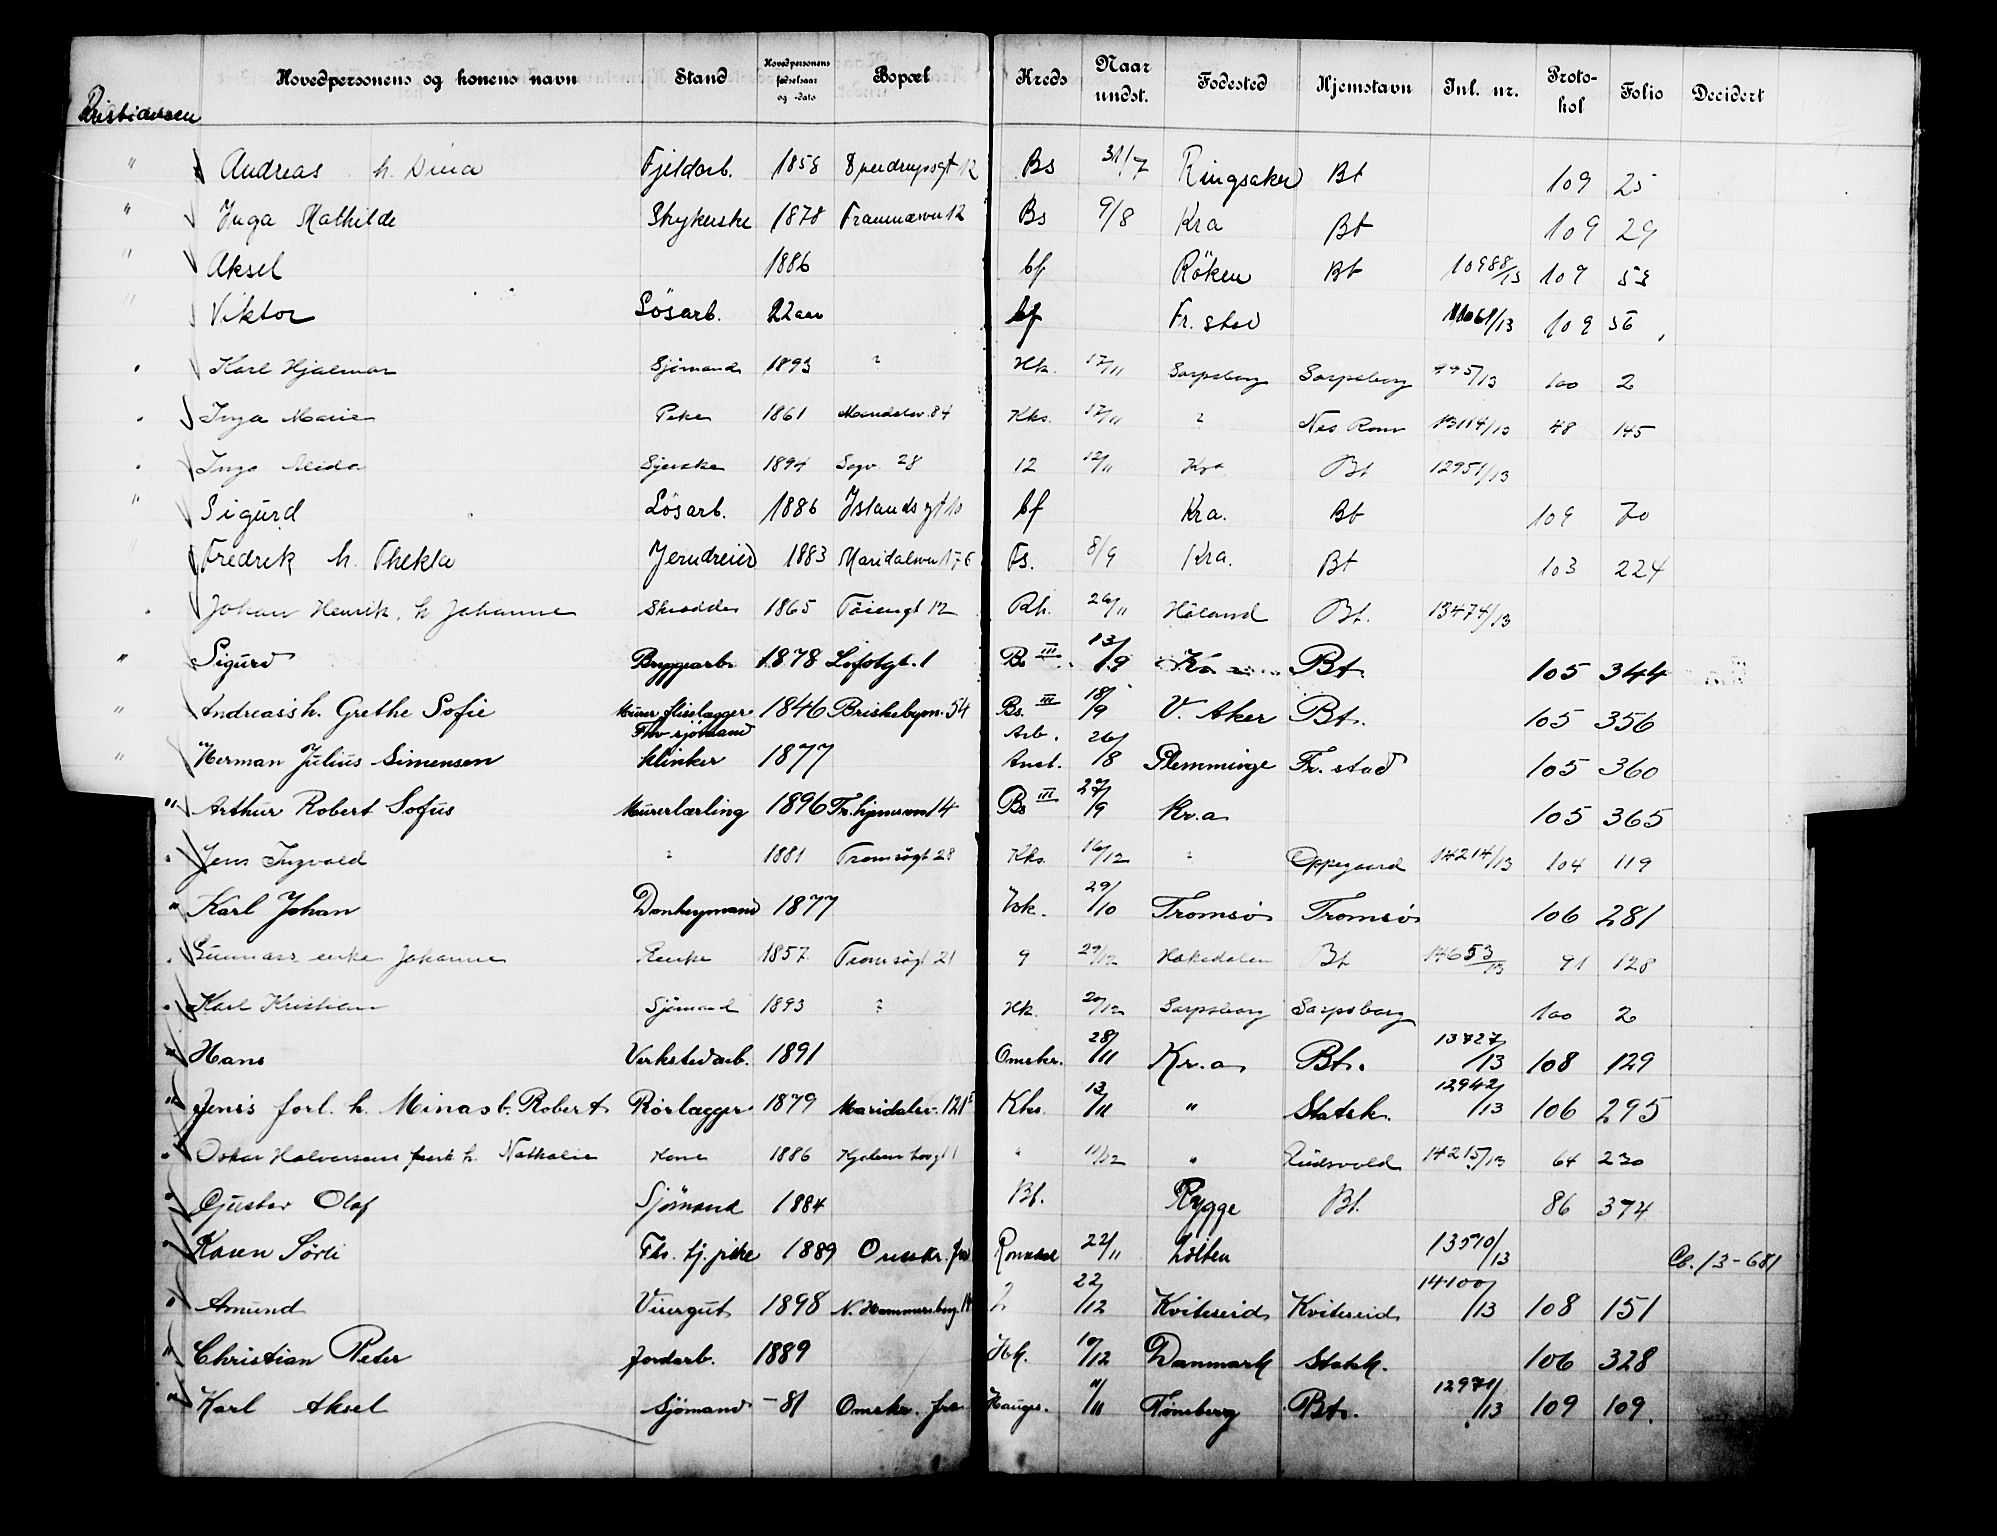 Hovedpersonens og konens navn Stand Hovedpersonens fødselsaar og -dato Bopæl Kreds Naar undst. Fødested Hjemstavn Inl. nr. Protokol Folio Decidert
Kristiansen
" Andreas h. Dina Fjeldarb. 1858 Sperdrupsgt 12 Bs 31/7 Ringsaker Bt 109 25
" Inga Mathilde Strykerske 1878 Framnæsvn 12 Bs 9/8 Kra Bt 109 29
" Aksel 1886 bf Röken Bt 10988/13 109 53
" Viktor Lösarb. 22 aar bf Fr. stad 11061/13 109 56
" Karl Hjalmar Sjömand 1893 ? Hk. 17/11 Sarpsborg Sarpsborg 995/13 100 2
" Inga Marie Pike 1861 Maridalsv. 84 Kks. 17/11 ? Nes Rom 13114/13 48 145
" Inga Alida Syerske 1894 Sagv. 28 12 12/11 Kra Bt 12951/13
" Sigurd Lösarb. 1886 Islandsgt 10 bf Kra. Bt 109 70
" Fredrik h. Thekla Jerndreier 1883 Maridalsvn 176 Fs. 8/9 Kra. Bt 103 224
" Johan Henrik, h Johanne Skrædder 1865 Töiengt 12 Rh. 26/11 Höland Bt. 13474/13
" Sigurd Bryggearb. 1878 Lofotgt. 1 Bs III 13/9 Kra Bt. 105 344
" Andreas's h. Grethe Sofie Murer fliselægger 1846 Briskebyvn. 54 Bs. III 18/9 V. Aker Bt. 105 356
" Herman Julius Simensen Fhv sjömand klinker 1877 Arb. Anst. 26/8 Glemminge Fr. stad 105 360
" Arthur Robert Sofus Murerlærling 1896 Tr.hjemsvn 14 Bs III 27/9 Kr.a 105 365
" Jens Ingvald ? 1881 Tromsögt 28 Kks. 16/12 " Oppegaard 14214/13 104 119
" Karl Johan Donkeymand 1877 Vok. 29/10 Tromsö Tromsö 106 281
" Gunnars enke Johanne Enke 1857 Tromsögt 21 9 29/12 Hakedalen Bt 14653/13 91 128
" Karl Kristian Sjömand 1893 ? Hk. 20/12 Sarpsborg Sarpsborg 100 2
" Hans Verkstedarb. 1891 Omskr. 28/11 Kr.a Bt. 13727/13 108 129
" Jens's forl. h. Minas b. Robert Rörlægger 1879 Maridalsv. 121 Kks. 13/11 " Statsk. 12942/13 106 295
" Oskar Halvorsens h. Nathalie Kone 1886 " 11/12 " Eidsvold 14215/13 64 230
" Gustav Olaf Sjömand 1884 Bf. Rygge Bt. 86 374
" Karen Sörli Fhv. tj. pike 1889 Omskr. fra Romedal 22/11 Löiten 13510/13 Cb. 13-681
" Amund Visergut 1898 N. Hammersborg 14 2 22/12 Kviteseid Kviteseid 14100/13 108 151
" Christian Peter Jordarb. 1889 Hk. 10/12 Danmark Statsk. 106 328
" Karl Aksel Sjömand -81 Omskr. fra Hauges. 11/11 Tönsberg Bt. 12971/13 109 109.